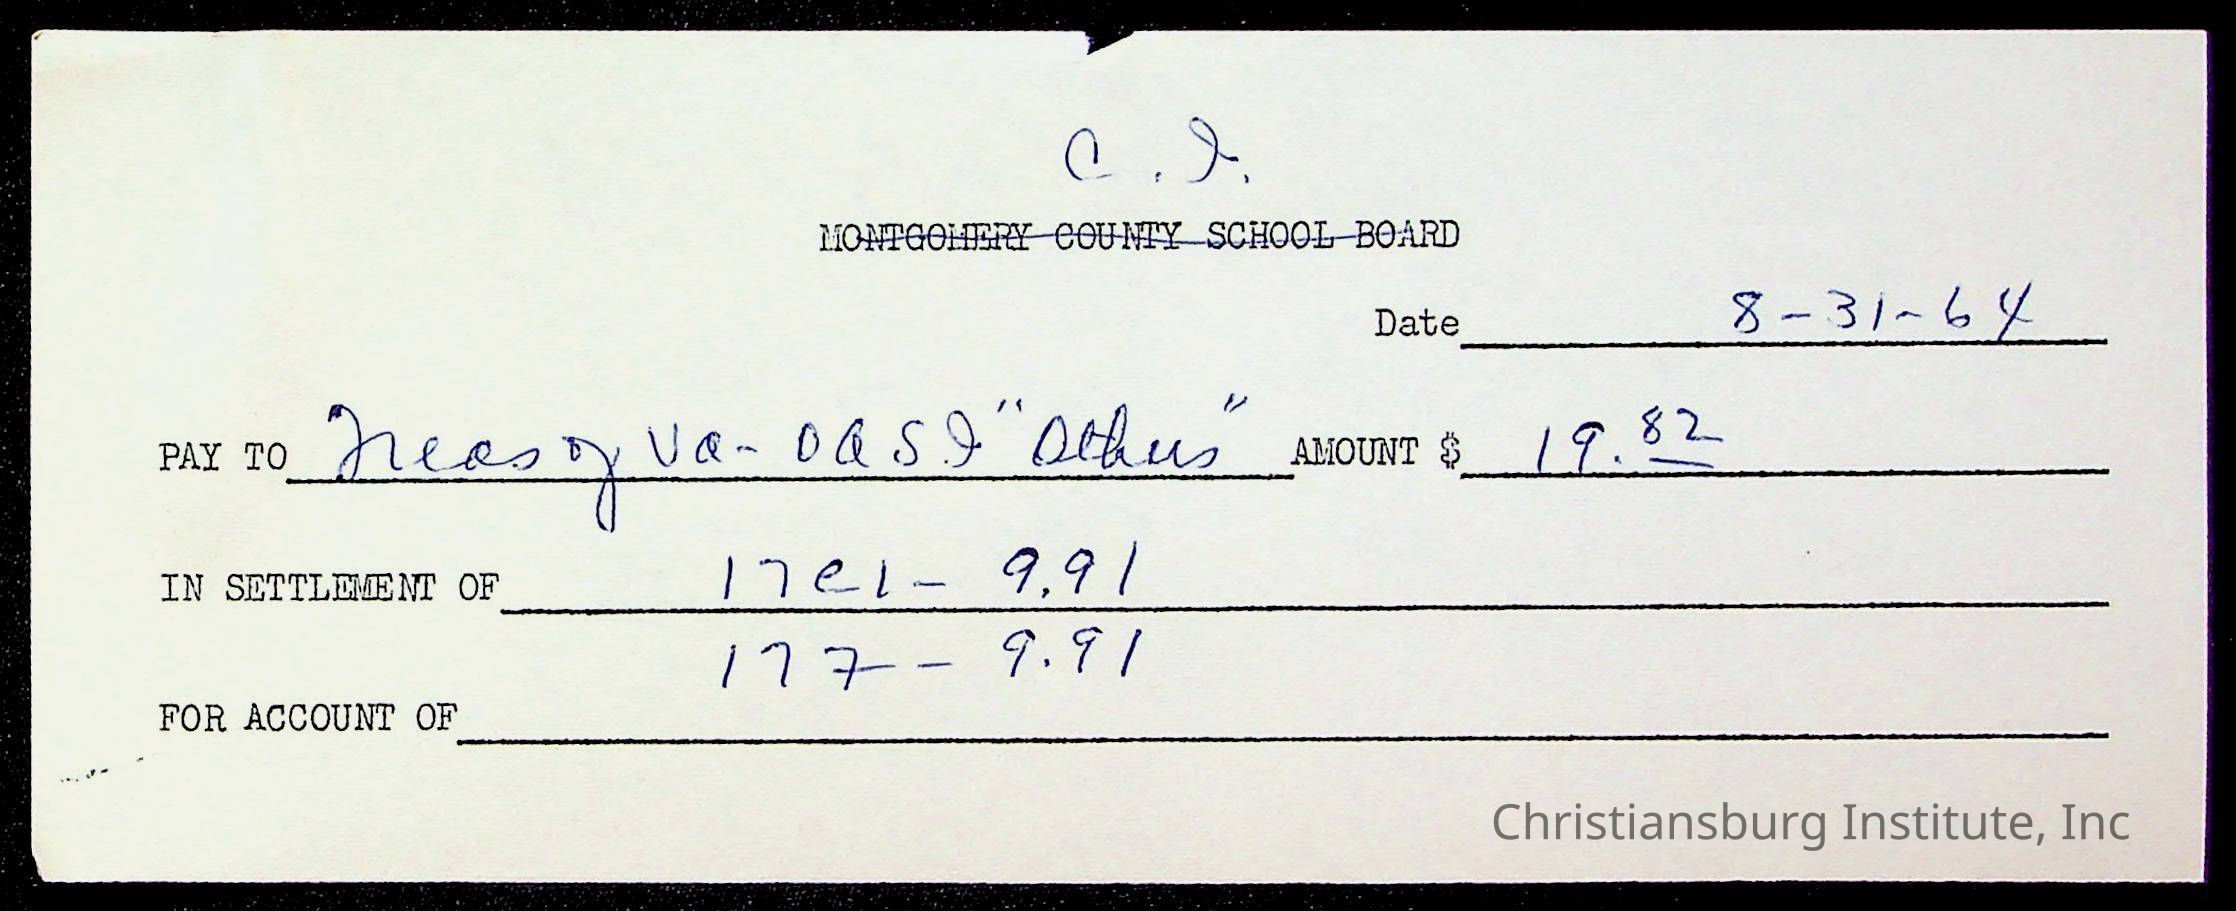 C. I.
MONTGOMERY COUNTY SCHOOL BOARD
Date 8-31-64
PAY TO Treas of Va- OASI "Others" AMOUNT $ 19.82
IN SETTLEMENT OF 17C1- 9.91
177- 9.91
FOR ACCOUNT OF
Christiansburg Institute, Inc